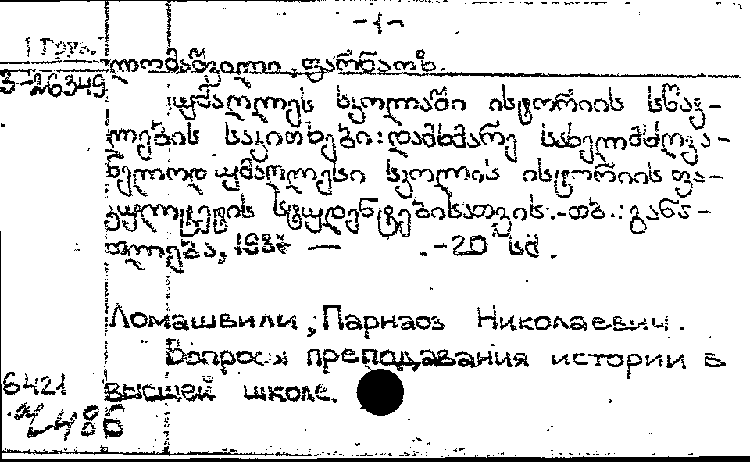 -1-
1 Груз.
ლომაშვილი, ფარნაოზ.
3-26349
უმაღლეს სკოლაში ისტორიის სწავ-
ლების საკითხები: დამხმარე სახელმძღვა-
ნელოდ უმაღლესი სკოლის ისტორიის ფა-
კულტეტის სტუდენტებისათვის.-თბ.: განა-
თლება, 198 — .-20 სმ.
Ломашвили, Парнаоз Николаевич.
Вопросы преподавания истории в
6421 высшей школе.
486